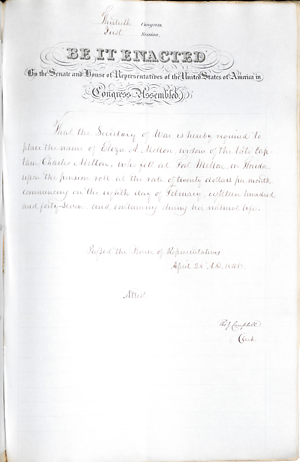 Thirtieth Congress,
First Session,
BE IT ENACTED
By the Senate and House of Representatives of the United States of America in
Congress Assembled,
That the Secretary of War is hereby required to
place the name of Eliza A. Mellon, widow of the late Cap
tain Charles Mellon, who fell at Fort Mellon in Florida
upon the pension roll at the rate of twenty dollars per month
commencing on the eighth day of February, eighteen hundred
and forty-seven and continuing during her natural life.
Passed the House of Representatives
April 1848.
Attest
Campbell
Clerk